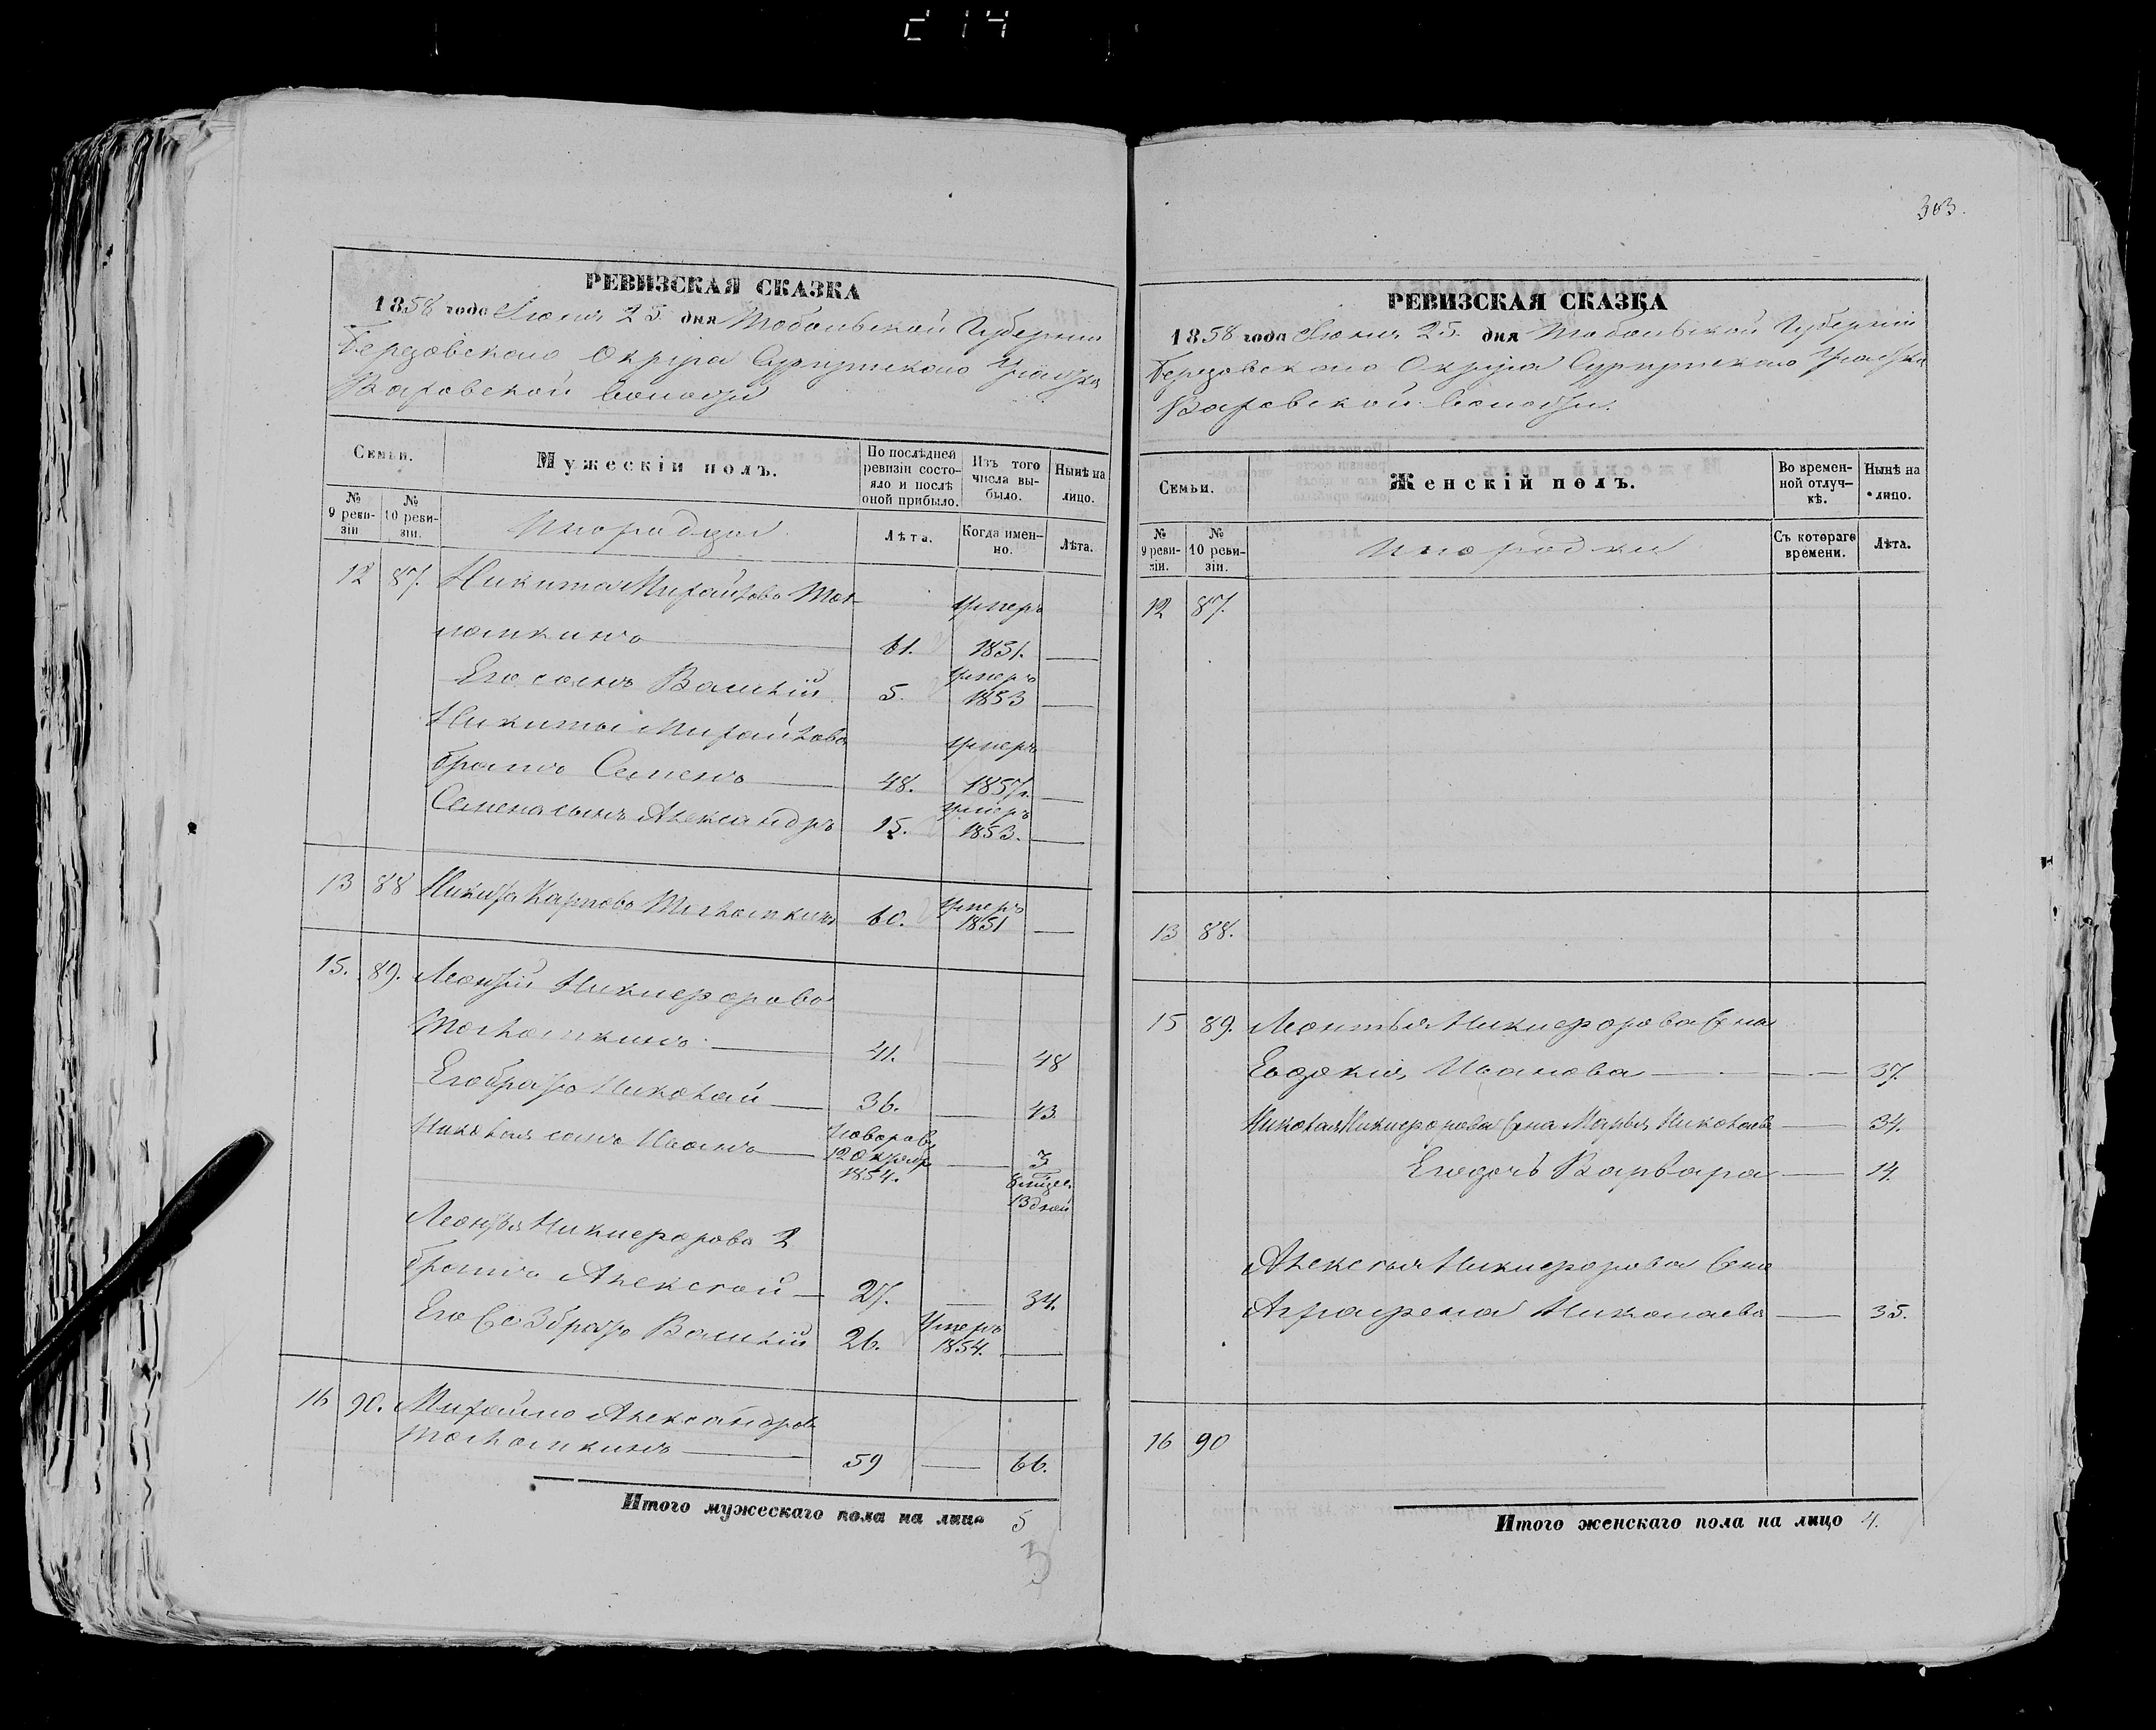 303.
РЕВИЗСКАЯ СКАЗКА
1858 года Июня 25. дня Тобольской Губернии
Березовского Округа Сургутскаго
Ваховской волости
Семьи.
Мужескій полъ.
По послѣдней ревизіи состояло и послѣ оной прибыло.
Изъ того числа выбыло.
Нынѣ на лицо.
№ 9 ревизіи
№ 10 ревизіи.
Инородцы
Лѣта.
Когда именно.
Лѣта.
12 87. Никита Михайловъ умеръ
61. 1851.
Его сынъ Василій 5. умеръ 1853
Никиты Михайлова умеръ
братъ Семенъ 48. 1857.
Семена сынъ Александръ 15. умеръ 1853.
13 88 Карповъ 60. умеръ 1851
15. 89. Леонтій Никифоровъ
41. 48
Его братъ Николай 36. 43
Николая сынъ Иванъ 1854. 3
Леонтья Никифорова 2
братъ Алексѣй 27. 34.
Его же 3 братъ Василій 26. умеръ 1854.
16 90. Михайло Александровъ
59 66.
Итого мужескаго пола на лицо 5
5
РЕВИЗСКАЯ СКАЗКА
1858 года Июня 25. дня Тобольской Губерніи
Березовскаго Округа Сургутскаго
Ваховской волости.
Семьи.
Женскій полъ.
Во временной отлучкѣ.
Нынѣ на лицо.
№ 9 ревизіи.
№ 10 ревизіи.
Инородки
Съ котораго времени.
Лѣта.
12 87.
13 88.
15 89. Леонтья Никифорова жена
Евдокія Иванова 37.
Николая Никифорова жена Марья Николаева 34.
Его дочь Варвара 14.
Алексѣя Никифорова жена
Аграфена Николаева 35.
16 90
Итого женскаго пола на лицо 4.